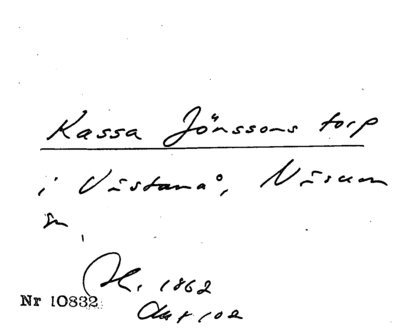 Kassa Jönssons torp
i Västanå, Näsum
sn,
H. 1862
Nr 10832
Akt 102